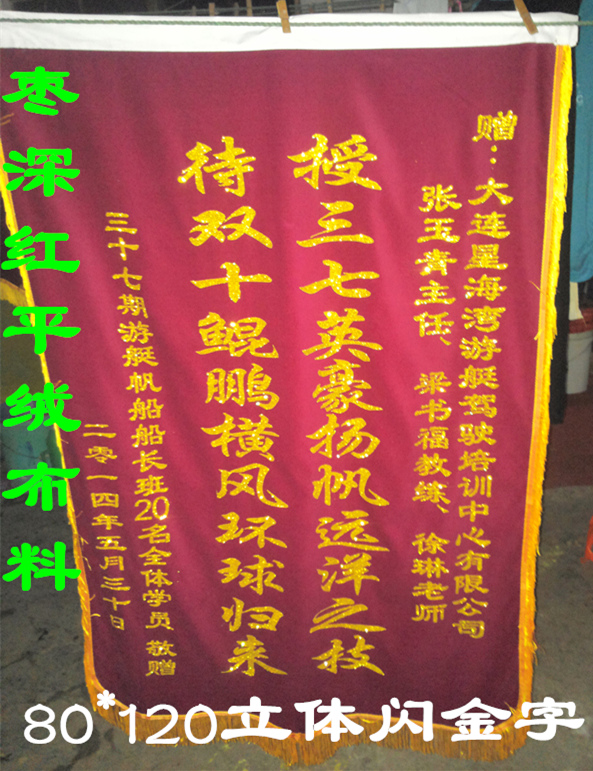 赠:大连星海湾游艇驾驶培训中心有限公司
张玉青主任、梁书福教练、徐琳老师
授三七英豪扬帆远洋之技
待双十鲲鹏横风环球归来
三十七期游艇帆船船长班20名全体学员 敬赠
二零一四年五月三十日
枣深红平绒布料
80*120立体闪金字